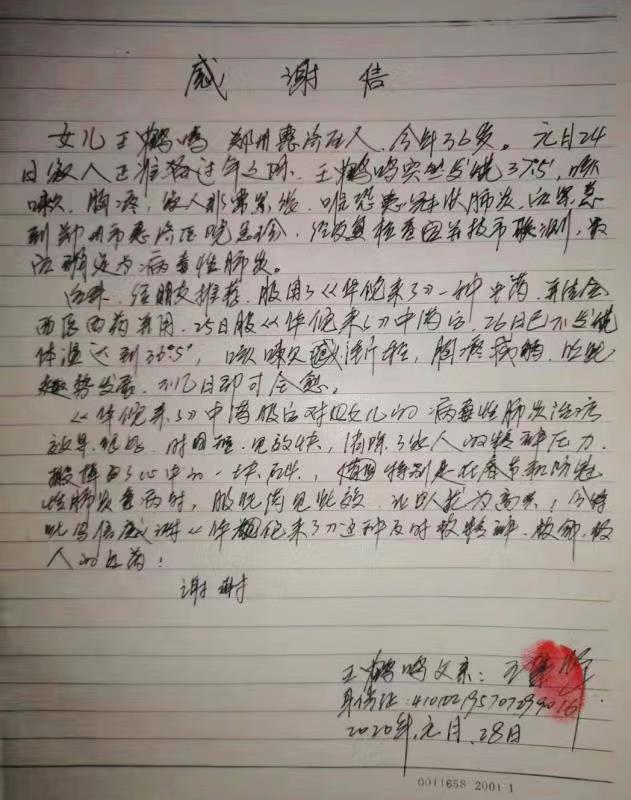 感谢信
女儿王鹤鸣 郑州惠济区人,今年36岁。元月24
日家人正准备过年之际,王鹤鸣突然发烧37°5,咳
嗽、胸疼,家人非常紧张,唯恐患冠状肺炎,后紧急
到郑州市惠济医院急诊,经反复检查因并技术联测,最
后确定为病毒性肺炎。
后来,经朋友推荐,服用了《华佗来了》一种中药,并结合
西医西药并用,25日服《华佗来了》中药后,26日已不发烧
体温达到35°5,咳嗽减轻,胸疼减稍,照此
趋势发展,不几日即可全愈。
《华佗来了》中药服后对四女儿的病毒性肺炎治疗
效果很好,时间短,见效快,消除了家人的精神压力,
搬掉了心中的一块石头,特别是在春节和防冠
性肺炎重要时,服此药见此效,让人尤为高兴!今特
此写信感谢《华佗来了》这种及时救精神、救命、救
人的好药!
谢谢
王鹤鸣父亲:王
身份证:
2020年元月28日
0011658 2001·1